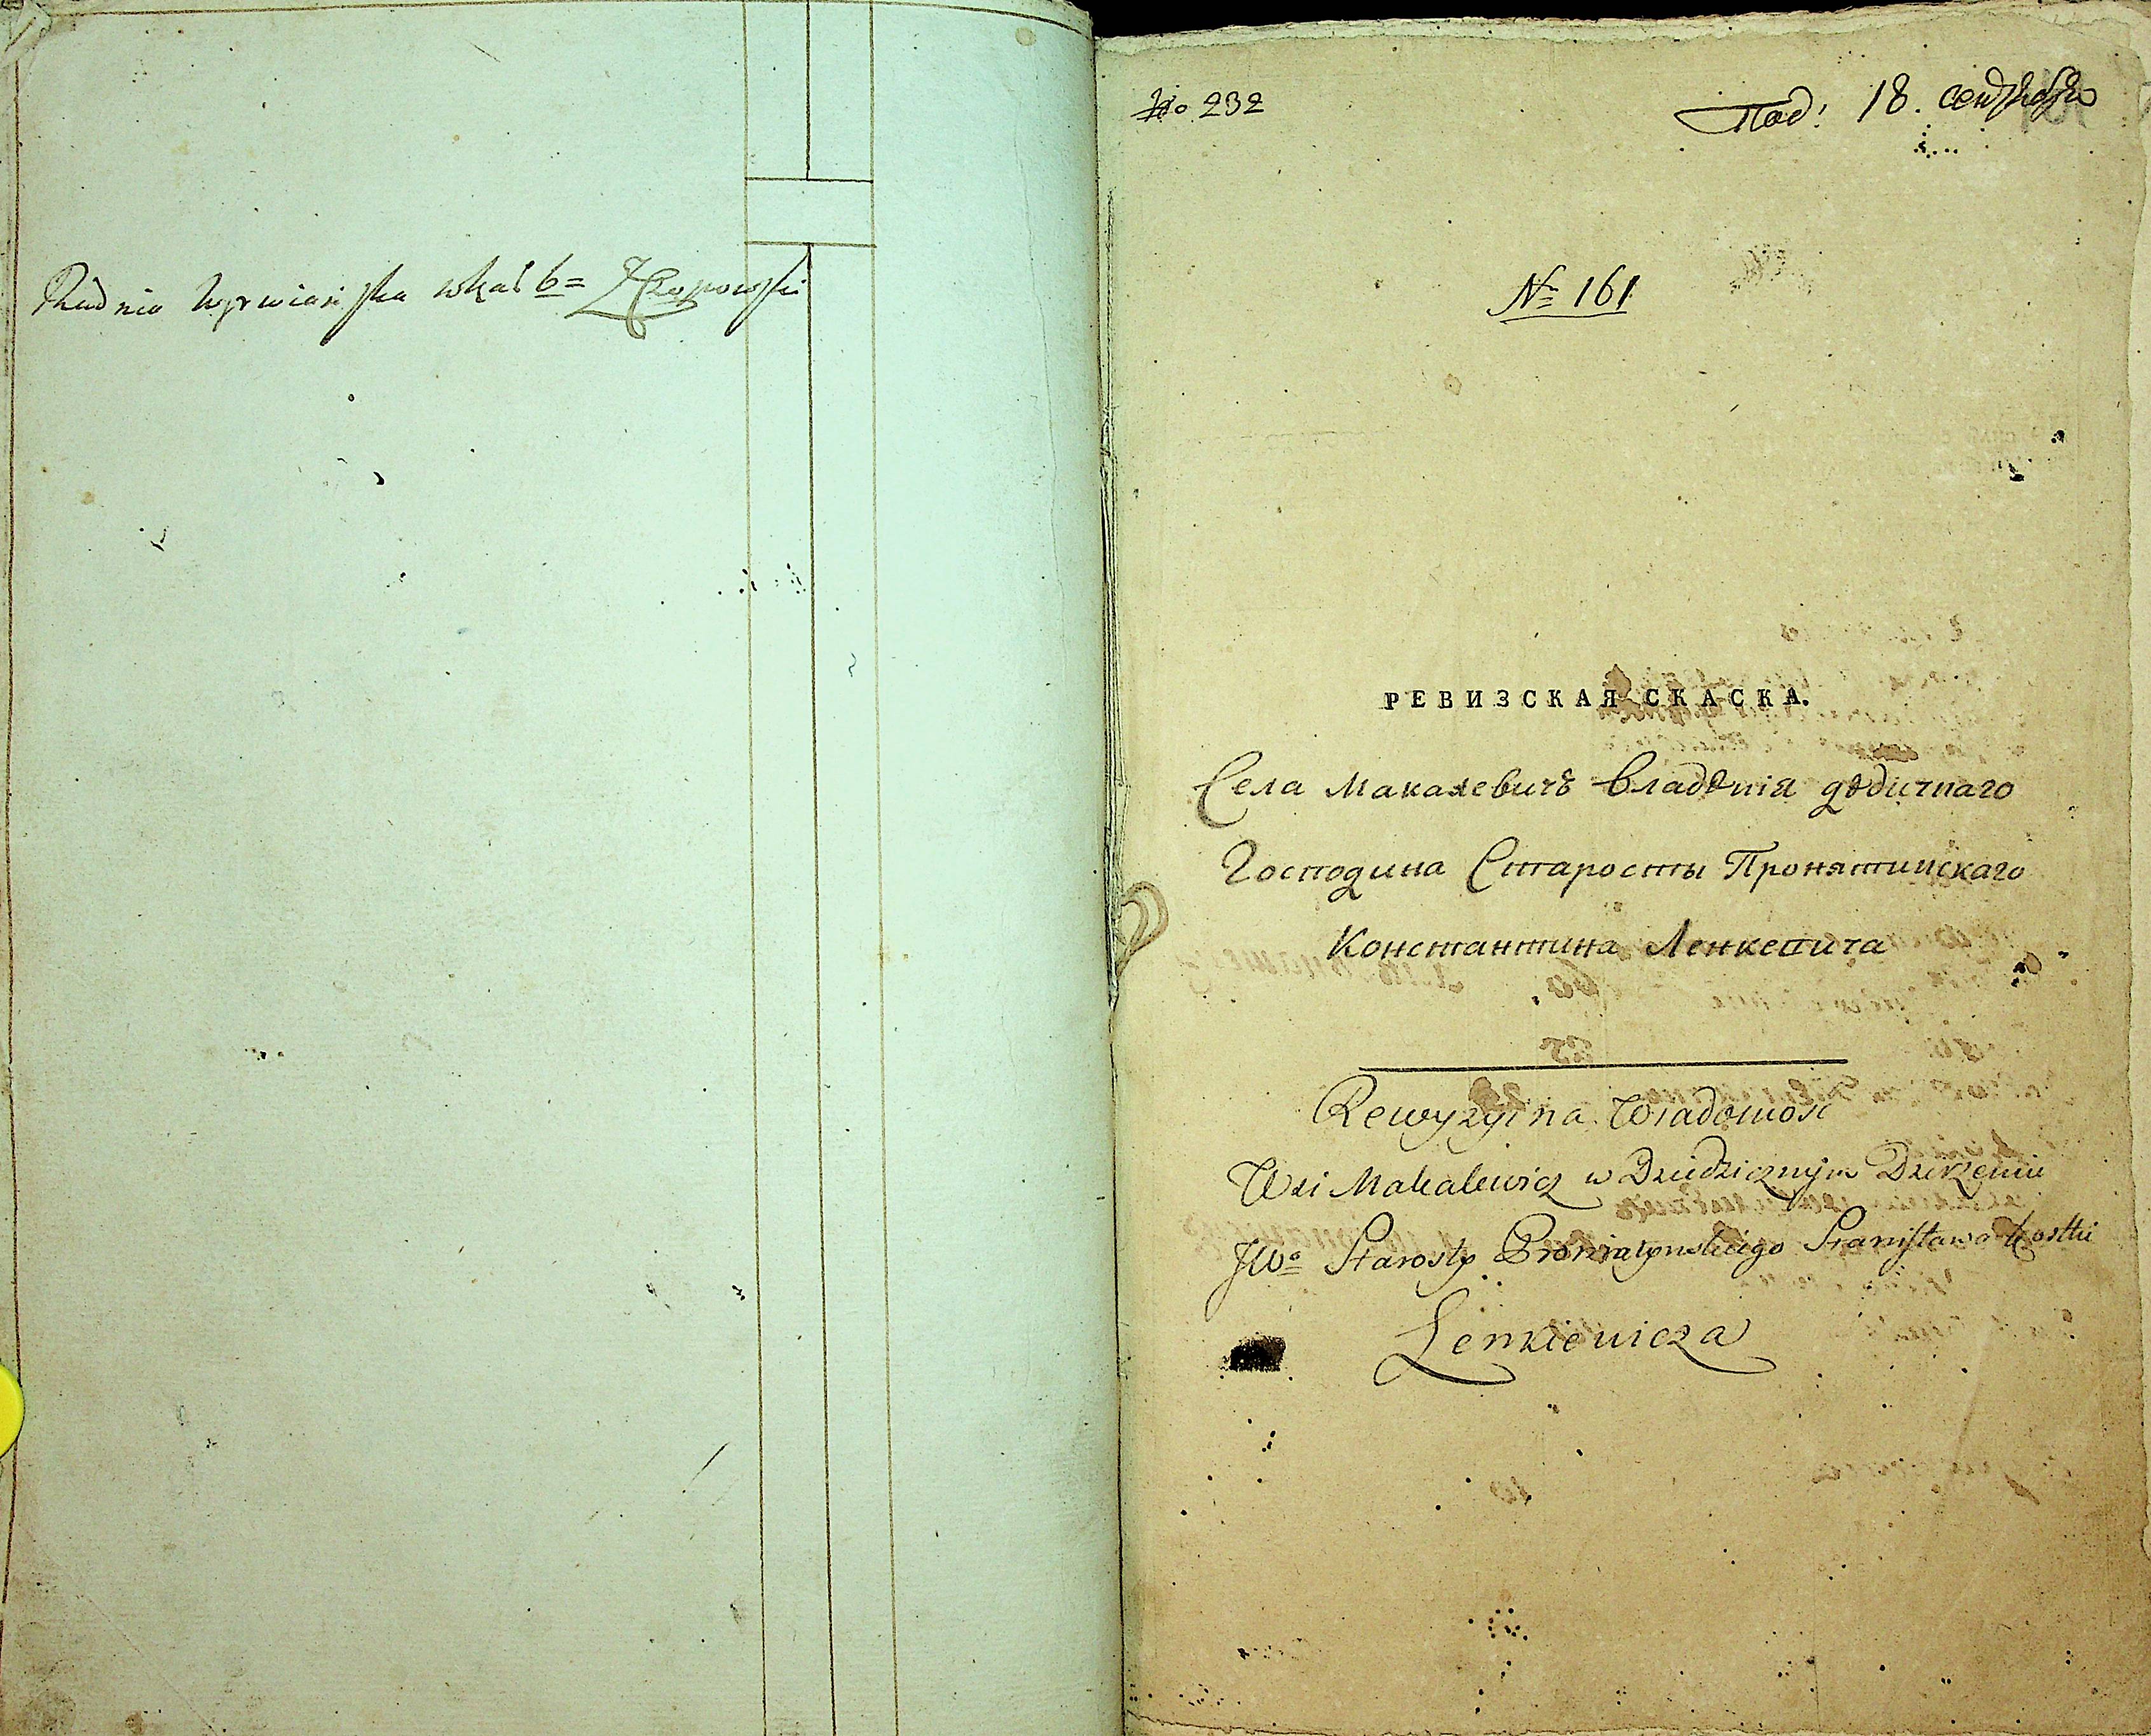 Rudnia
No 232
Под: 18. сентября
№ 161
РЕВИЗСКАЯ СКАСКА.
Села Макалевичъ владѣнія дѣдичнаго
Господина Старосты Пронятинскаго
Константина Ленкевича
Rewyzyina Wiadomość
Wsi Makalewicz w Dziedzicznym Dzierżeniu
JWo Starosty Proniatynskiego Stanisława Kostki
Lenkiewicza